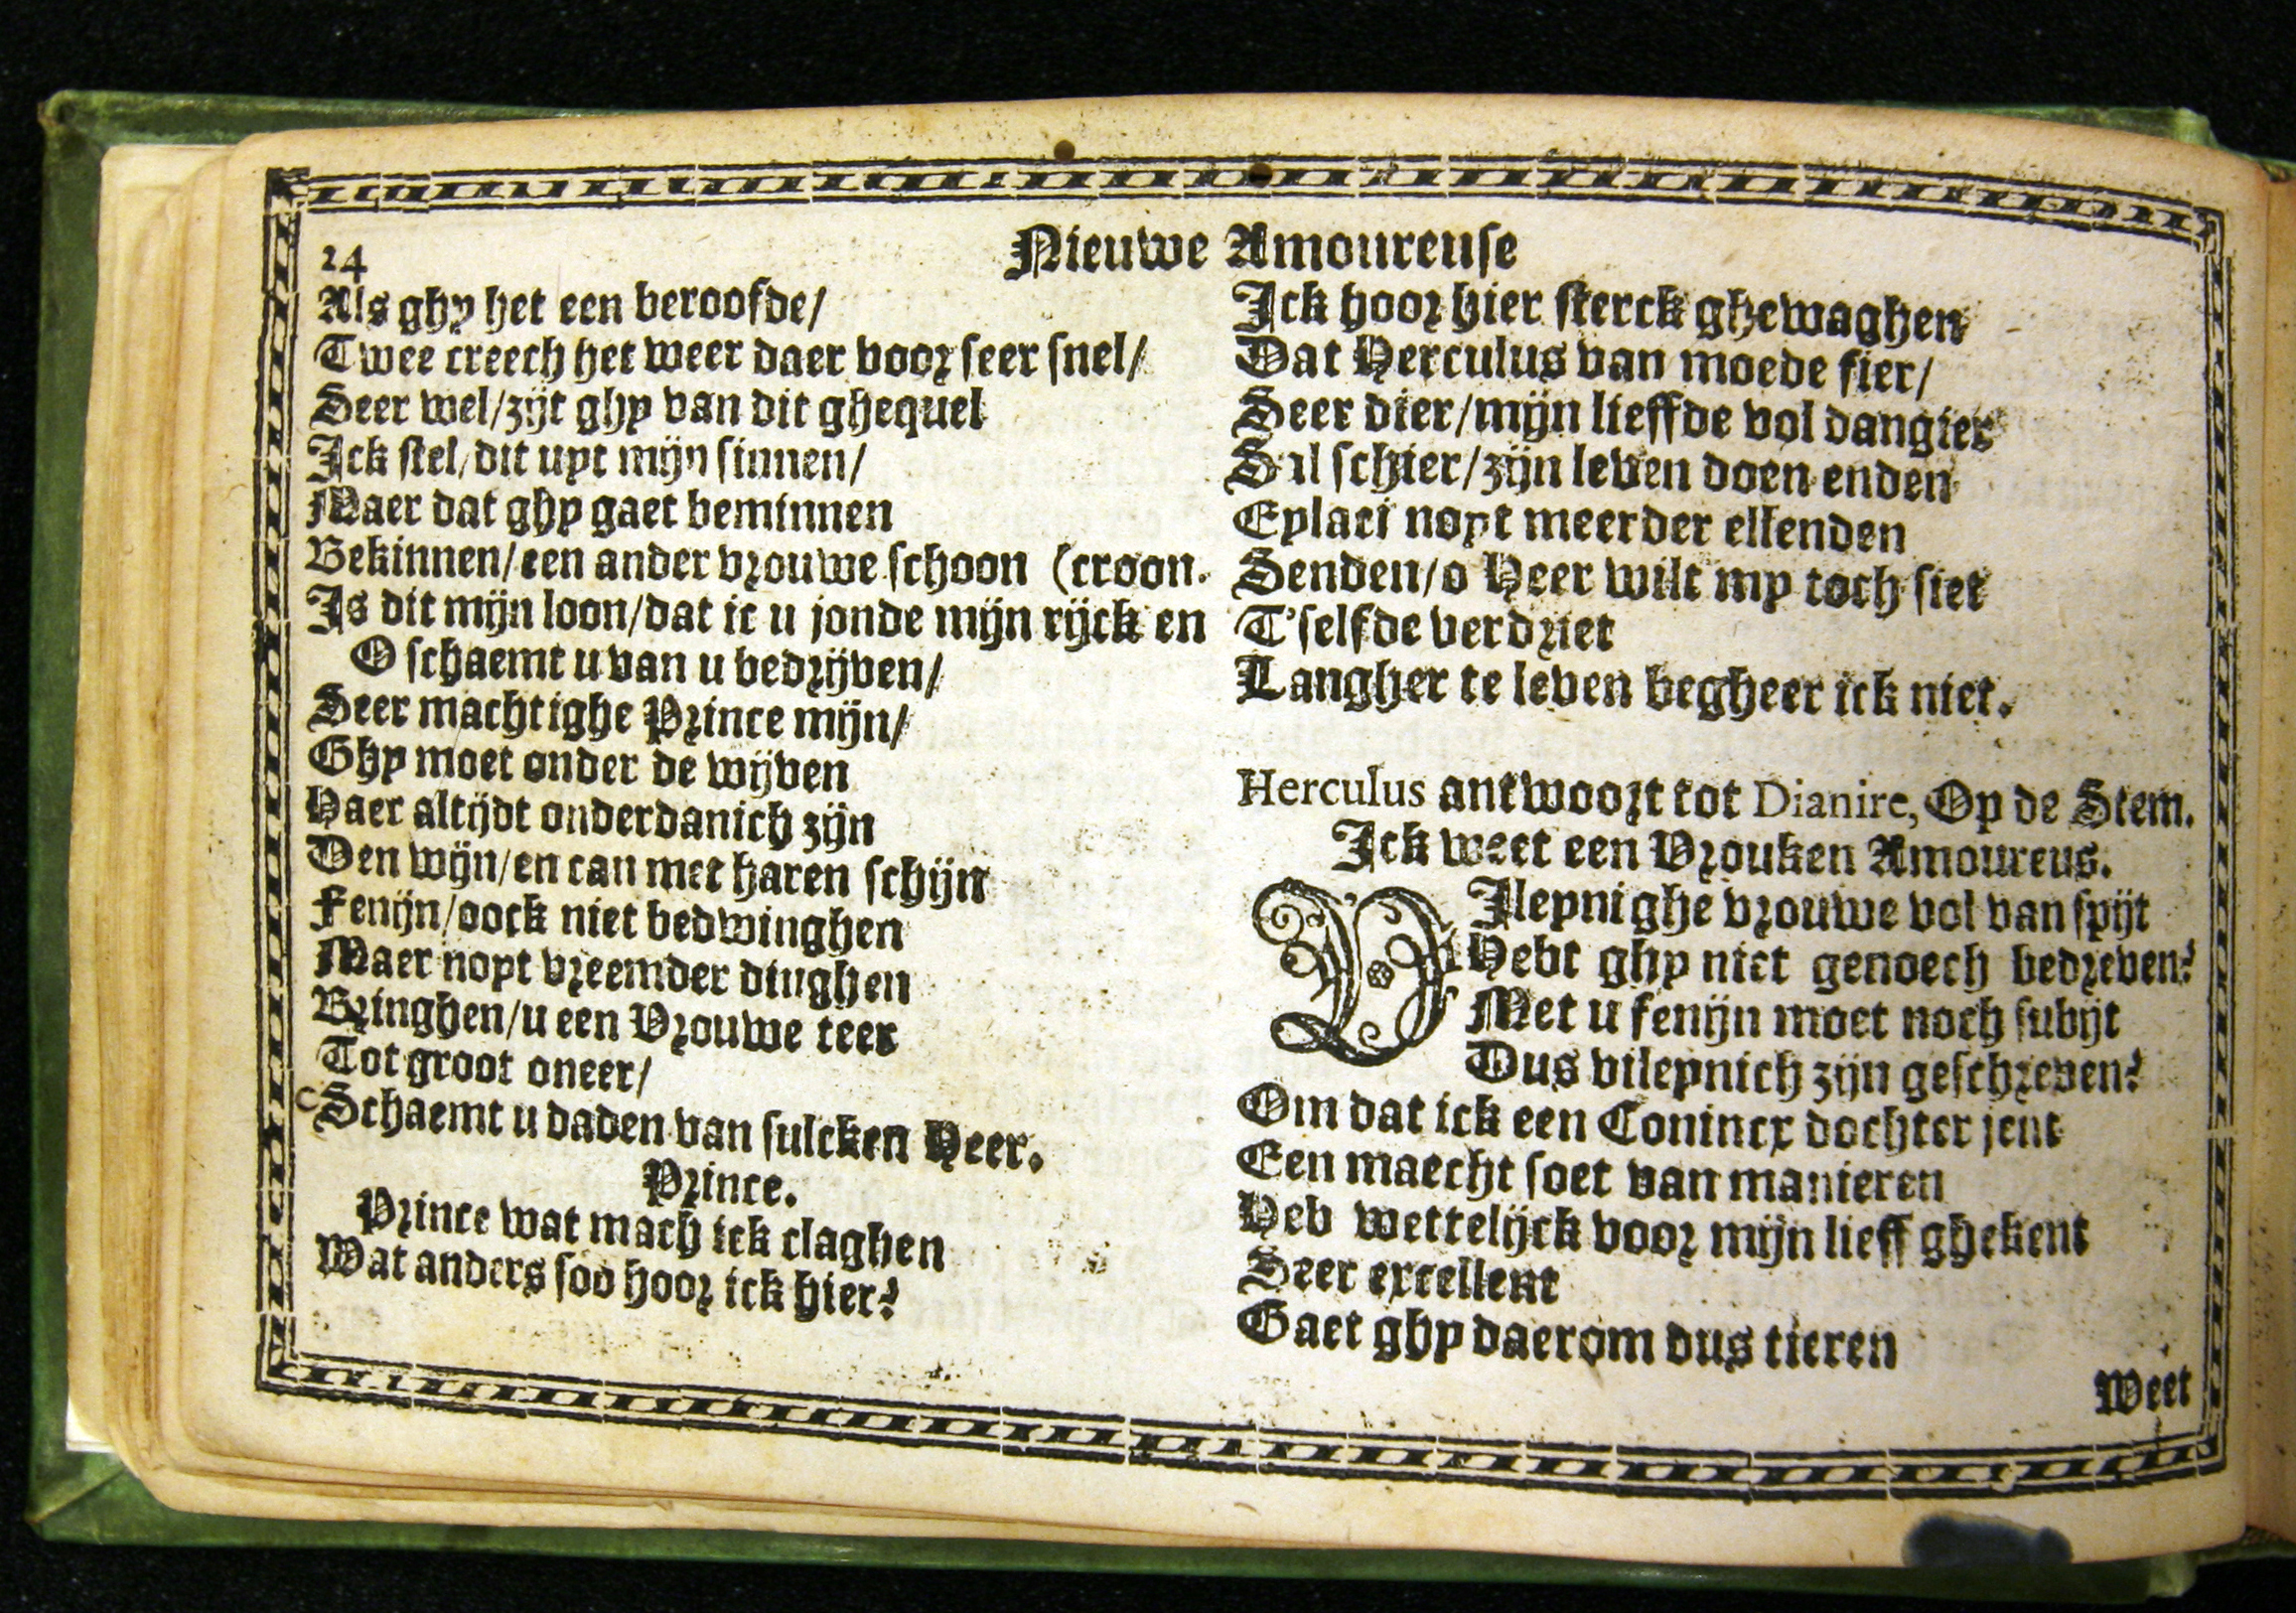 24
Nieuwe Amoureuse
Als ghy het een beroofde/
Twee creech het weer daer voor seer snel/
Seer wel/zijt ghy van dit ghequel
Ick stel/dit uyt mijn sinnen/
Maer dat ghy gaet beminnen
Bekinnen/een ander vrouwe schoon (croon.
Is dit mijn loon/dat ic u jonde mijn rijck en
O schaemt u van u bedrijven/
Seer machtighe Prince mijn/
Ghy moet onder de wijven
Haer altijdt onderdanich zijn
Den wijn/en can met haren schijn
Fenijn/oock niet bedwinghen
Maer noyt vreemder dinghen
Bringhen/u een Vrouwe teer
Tot groot oneer/
Schaemt u daden van sulcken Heer.
Prince.
Prince wat mach ick claghen
Wat anders soo hoor ick hier?
Ick hoor hier sterck ghewaghen
Dat Herculus van moede fier/
Seer dier/mijn lieffde vol dangier
Sal schier/zijn leven doen enden
Eylaci noyt meerder ellenden
Senden/o Heer wilt my toch siet
T'selfde verdriet
Langher te leven begheer ick niet.
Herculus antwoort tot Dianire, Op de Stem.
Ick weet een Vrouken Amoureus.
VIleynighe vrouwe vol van spijt
Hebt ghy niet genoech bedreven?
Met u fenijn moet noch subijt
Dus vileynich zijn geschreven?
Om dat ick een Conincx dochter jent
Een maecht soet van manieren
Heb wettelijck voor mijn lieff ghekent
Seer excellent
Gaet ghy daerom dus tieren
Weet